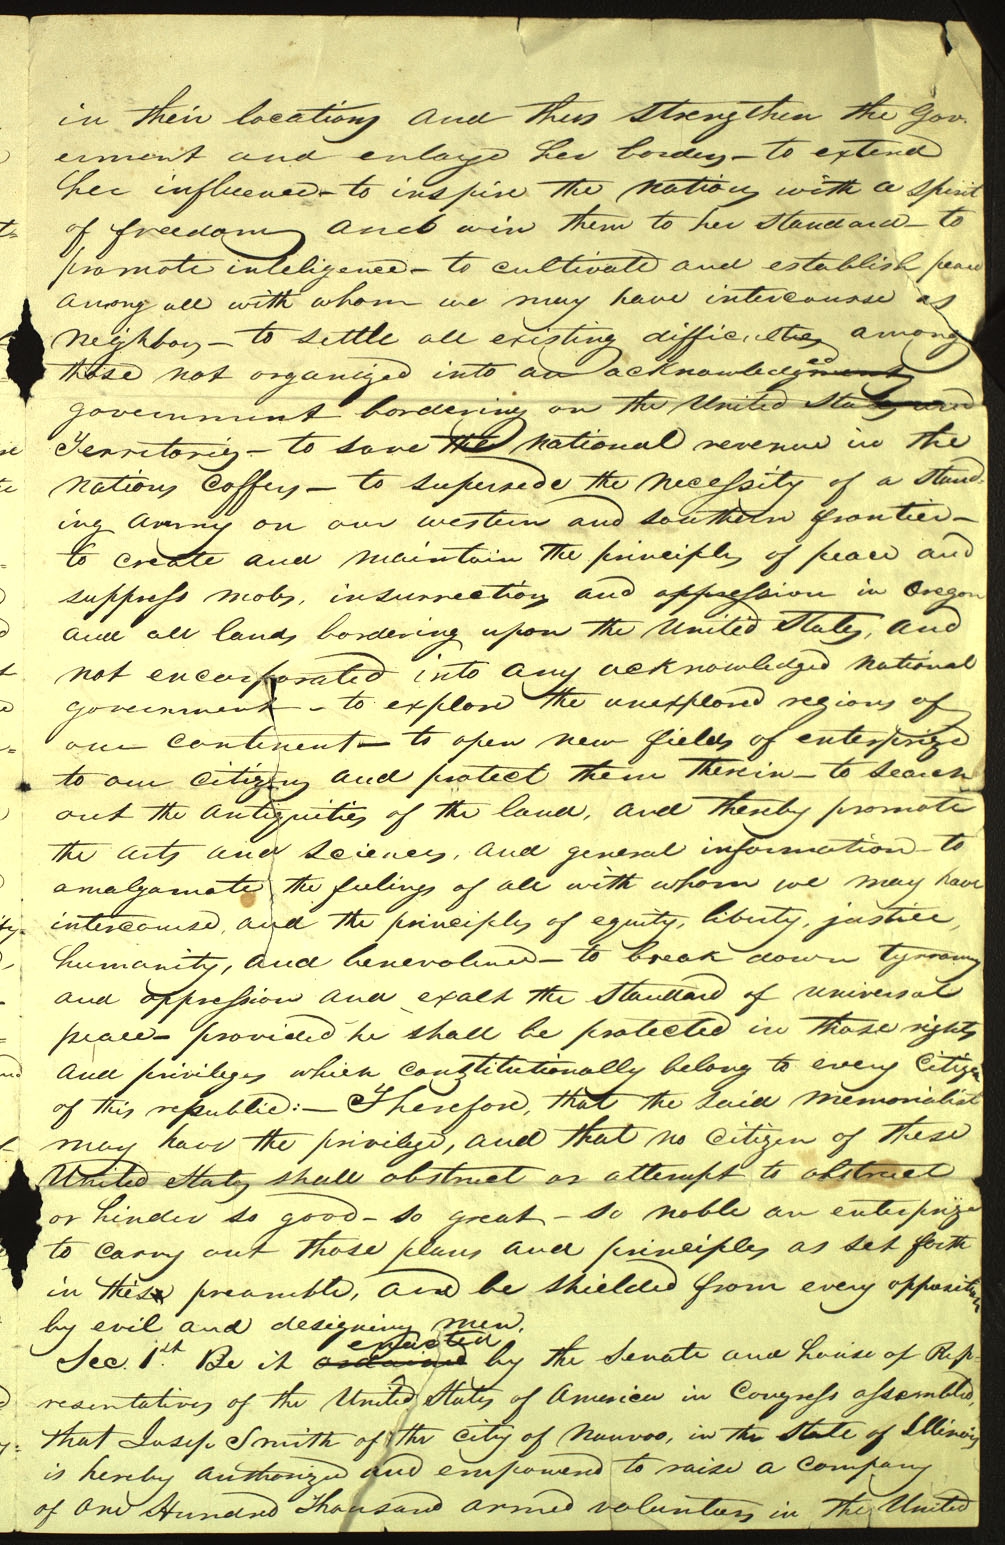 in their locations and thus strengthen the Gov-
erment and enlarge her borders — to extend
her influence — to inspire the nations with a spirit
of freedom and win them to her standard — to
promote inteligence — to cultivate and establish peace
among all with whom we may have intercourse as
neighbors — to settle all existing difficulties among
those not organized into an acknowledged
government bordering on the United States and
Territories — to save the national revenue in the
nations coffers — to supersede the necessity of a stand-
ing army on our western and southern frontier —
to create and maintain the principles of peace and
suppress mobs, insurrections and oppression in Oregon
and all lands bordering upon the United States, and
not encorporated into any acknowledged national
government — to explore the unexplored regions of
our continent — to open new fields of enterprize
to our citizens and protect them therein — to search
out the antiquities of the land, and thereby promote
the arts and sciences, and general information — to
amalgamate the feelings of all with whom we may have
intercourse, and the principles of equity, liberty, justice,
humanity, and benevolence — to break down tyranny
and oppression and exalt the standard of universal
peace — provided he shall be protected in those rights
and privileges which constitutionally belong to every citizen
of this republic: — Therefore, that the said memorialist
may have the privilege, and that no citizen of these
United States shall obstruct or attempt to obstruct
or hinder so good — so great — so noble an enterprize
to carry out those plans and principles as set forth
in this preamble, and be shielded from every opposition
by evil and designing men.
enacted
Sec. 1st. Be it ordained by the Senate and House of Rep-
resentatives of the United States of America in Congress assembled,
that Joseph Smith of the city of Nauvoo, in the State of Illinois
is hereby authorized and empowered to raise a company
of one Hundred Thousand armed volunteers in the United